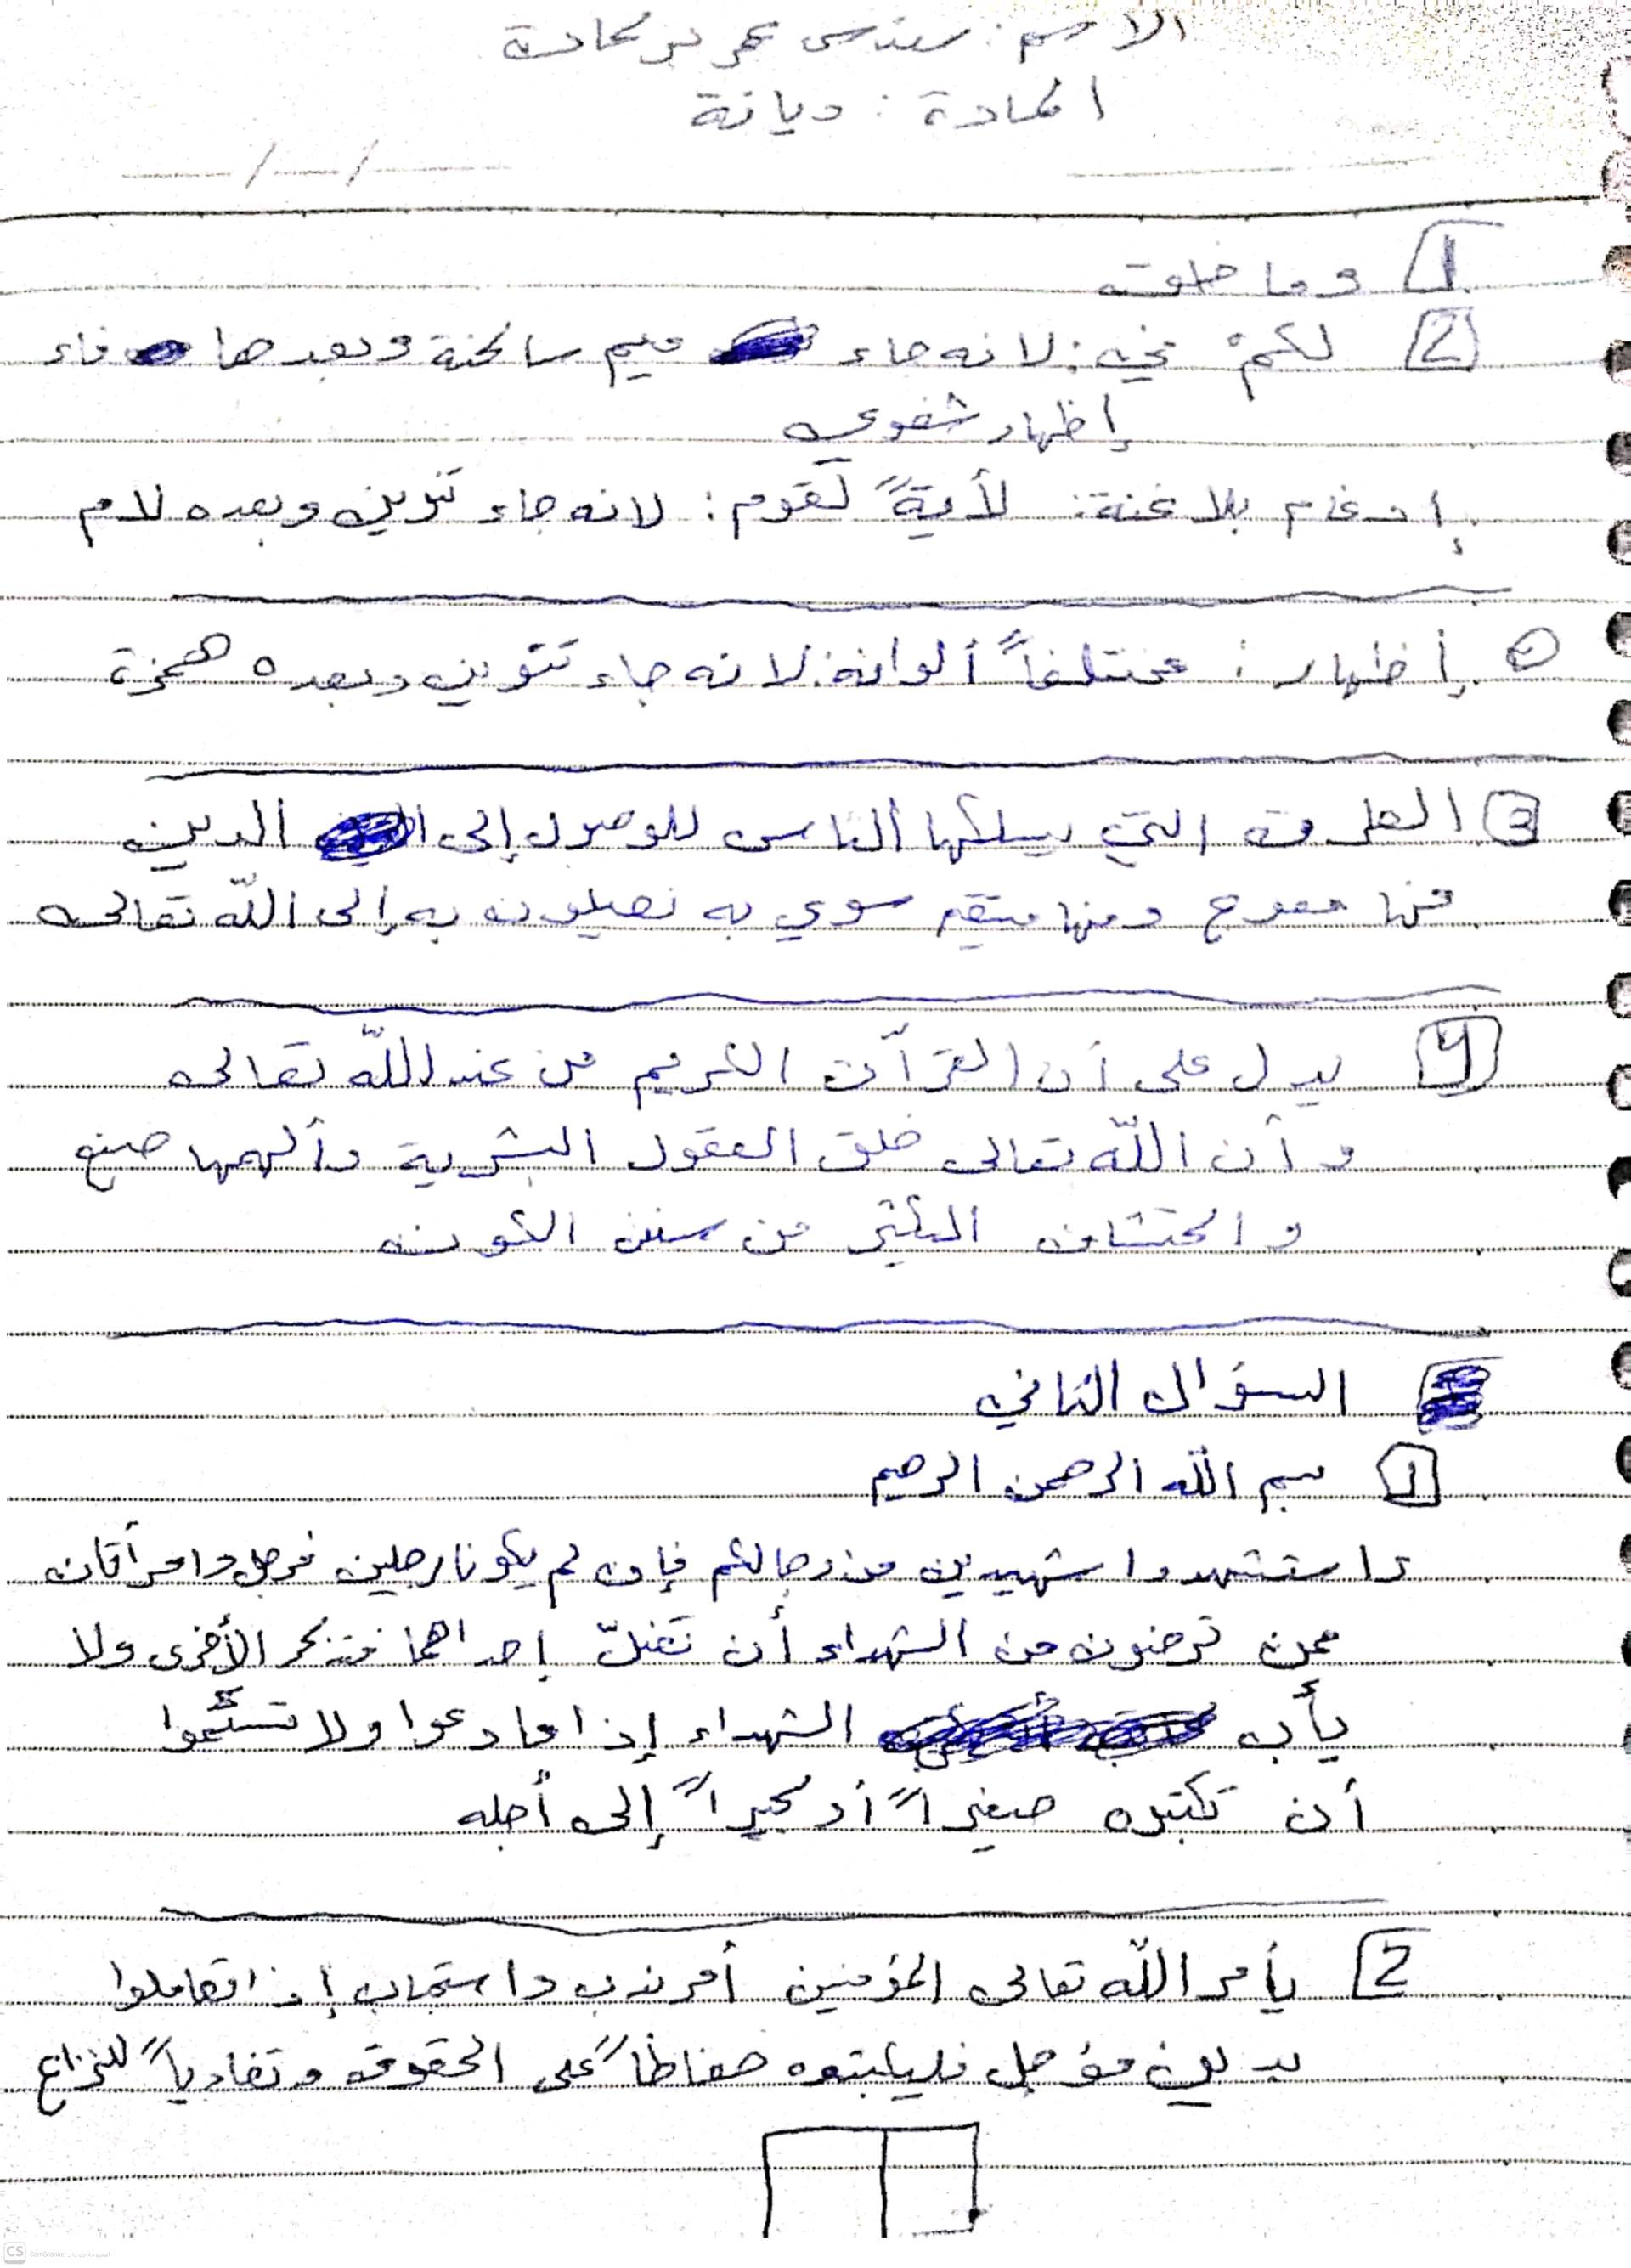 الاسم: سندس عمر بركات
المادة: ديانة
1 وما خلق
2 لكمْ في: لانه جاء ميم ساكنة وبعدها فاء
إظهار شفوي
إدغام بلا غنة: لأيةً لقوم: لانه جاء تنوين وبعده لام
إظهار: مختلفاً ألوانه: لانه جاء تنوين وبعده همزة
3 الطرق التي يسلكها الناس للوصول إلى الدين
منها معوج ومنها متقيم سوي به نصلون به إلى اللّه تعالى
4 يدل على أن القرآن الكريم من عند اللّه تعالى
وأن اللّه تعالى خلق العقول البشرية وألهمها صنع
واكتشاف الكثير من سنن الكون
السؤال الثاني
1 بسم اللّه الرحمن الرحيم
واستشهدوا شهيدين من رجالكم فإن لم يكونا رجلين فرجل وامرأتان
ممن ترضون من الشهداء أن تضلّ إحداهما فتذكر الأخرى ولا
يأب الشهداء إذا ما دعوا ولا تسئموا
أن تكتبوه صغيراً أو كبيراً إلى أجله
2 يأمر اللّه تعالى المؤمنين أمر ندب واستحباب إذا تعاملوا
بدين مؤجل فليكتبوه حفاظاً على الحقوق وتفادياً للنزاع
CS CamScanner